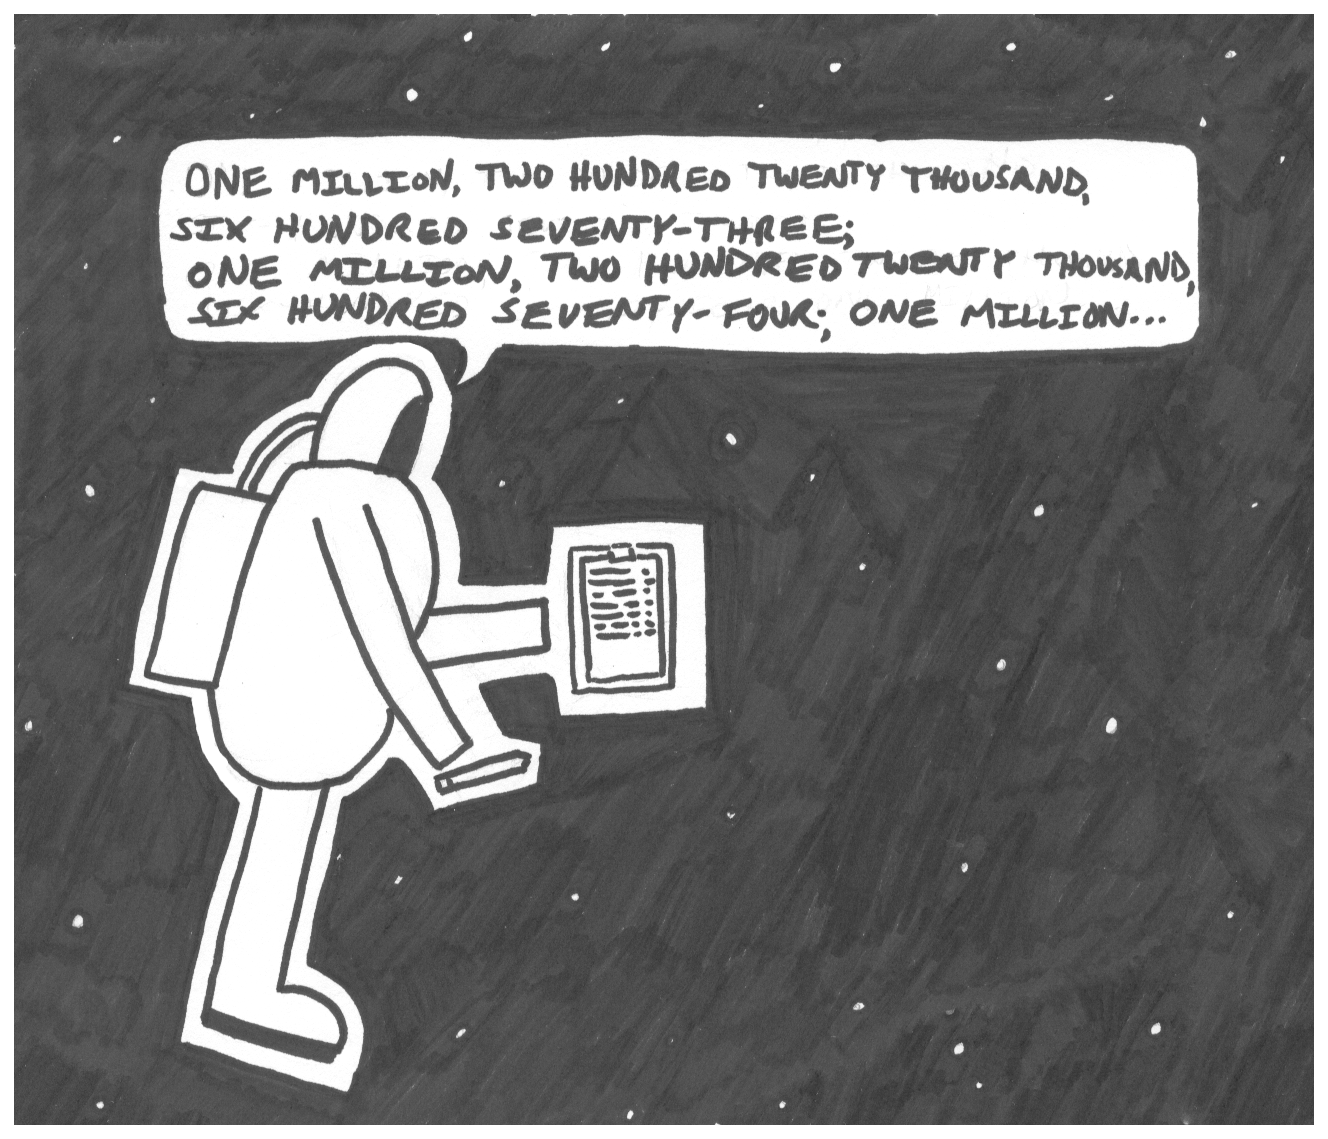 ONE MILLION, TWO HUNDRED TWENTY THOUSAND,
SIX HUNDRED SEVENTY-THREE;
ONE MILLION, TWO HUNDRED TWENTY THOUSAND,
SIX HUNDRED SEVENTY-FOUR; ONE MILLION...